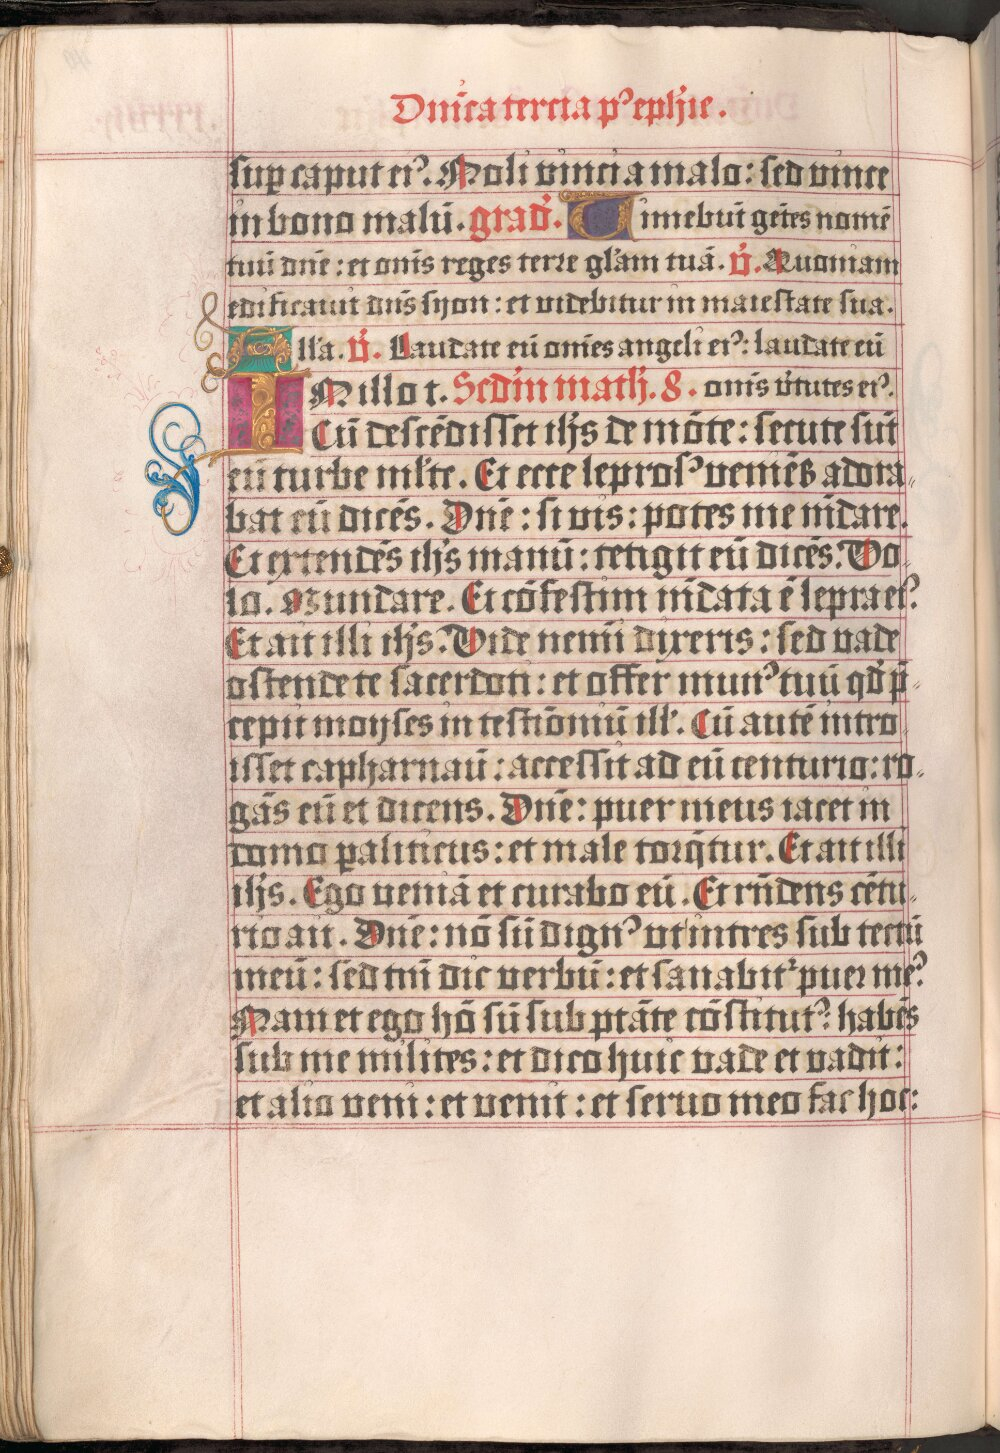 Dnĩca tercia pꝰ eph̃ie.
suꝑ caput eiꝰ. Noli vinci a malo: sed vince
in bono malũ. grad̃. Timebũt gẽtes nomẽ
tuũ dñe: et om̃s reges terre gl̃am tuã. v̉. Quoniam
edificauit dñs syon: et videbitur in maiestate sua.
Alla. v̉. Laudate eũ om̃es angeli eiꝰ: laudate eũ
IN illo t. Scd̃m math̃. 8. om̃s v̉tutes eiꝰ.
Cũ descẽdisset ih̃s de mõte: secute sũt
eũ turbe ml̃te. Et ecce leprosꝰ veniẽs adora
bat eũ dicẽs. Dñe: si vis: potes me mũdare.
Et extendẽs ih̃s manũ: tetigit eũ dicẽs. Vo
lo. Mundare. Et cõfestim mũdata ẽ lepra eiꝰ.
Et ait illi ih̃s. Vide nemini dixeris: sed vade
ostende te sacerdoti: et offer munꝰ tuũ qd̃ p̃
cepit moyses in testĩoniũ ill̉. Cũ autẽ intro
isset capharnaũ: accessit ad eũ centurio: ro
gãs eũ et dicens. Dñe: puer meus iacet in
domo paliticus: et male torq̃tur. Et ait illi
ih̃s. Ego veniã et curabo eũ. Et rñdens cẽtu
rio ait. Dñe: nõ sũ dignꝰ vt intres sub tectũ
meũ: sed tm̃ dic verbũ: et sanabit᷑ puer meꝰ
Nam et ego hõ sũ sub ptãte cõstitutꝰ: habẽs
sub me milites: et dico huic vade et vadit:
et alio veni: et venit: et seruo meo fac hoc: